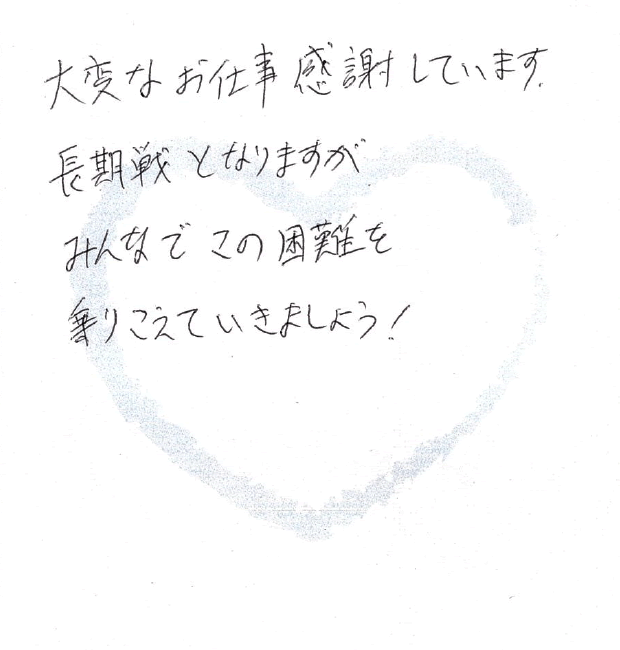 大変なお仕事感謝しています.
長期戦となりますが
みんなでこの困難を
乗りこえていきましょう!